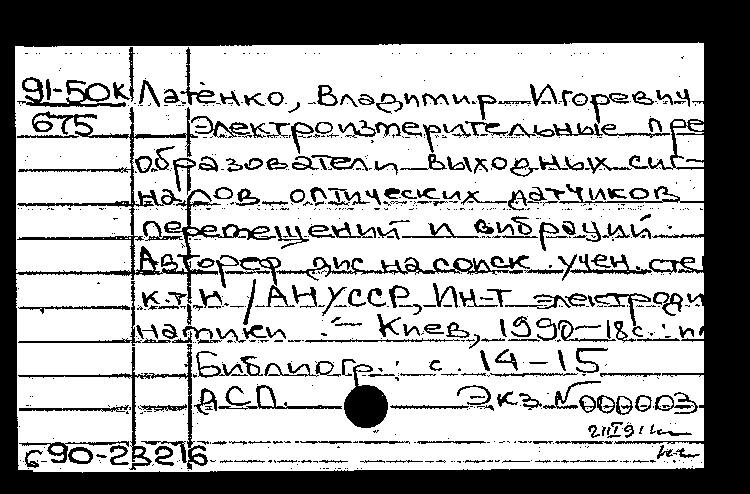 91-50к Латенко, Владимир Игоревич
675 Электроизмерительные пре
образователи выходных сиг-
налов оптических датчиков
перемещений и вибраций.
Автореф дис на соиск. учен. сте
к.т.н. / АН УССР, Ин-т электроди
намики .- Киев, 1990-18с.: ил
Библиогр.: с. 14-15
ДСП. Экз. №000003
с90-23216